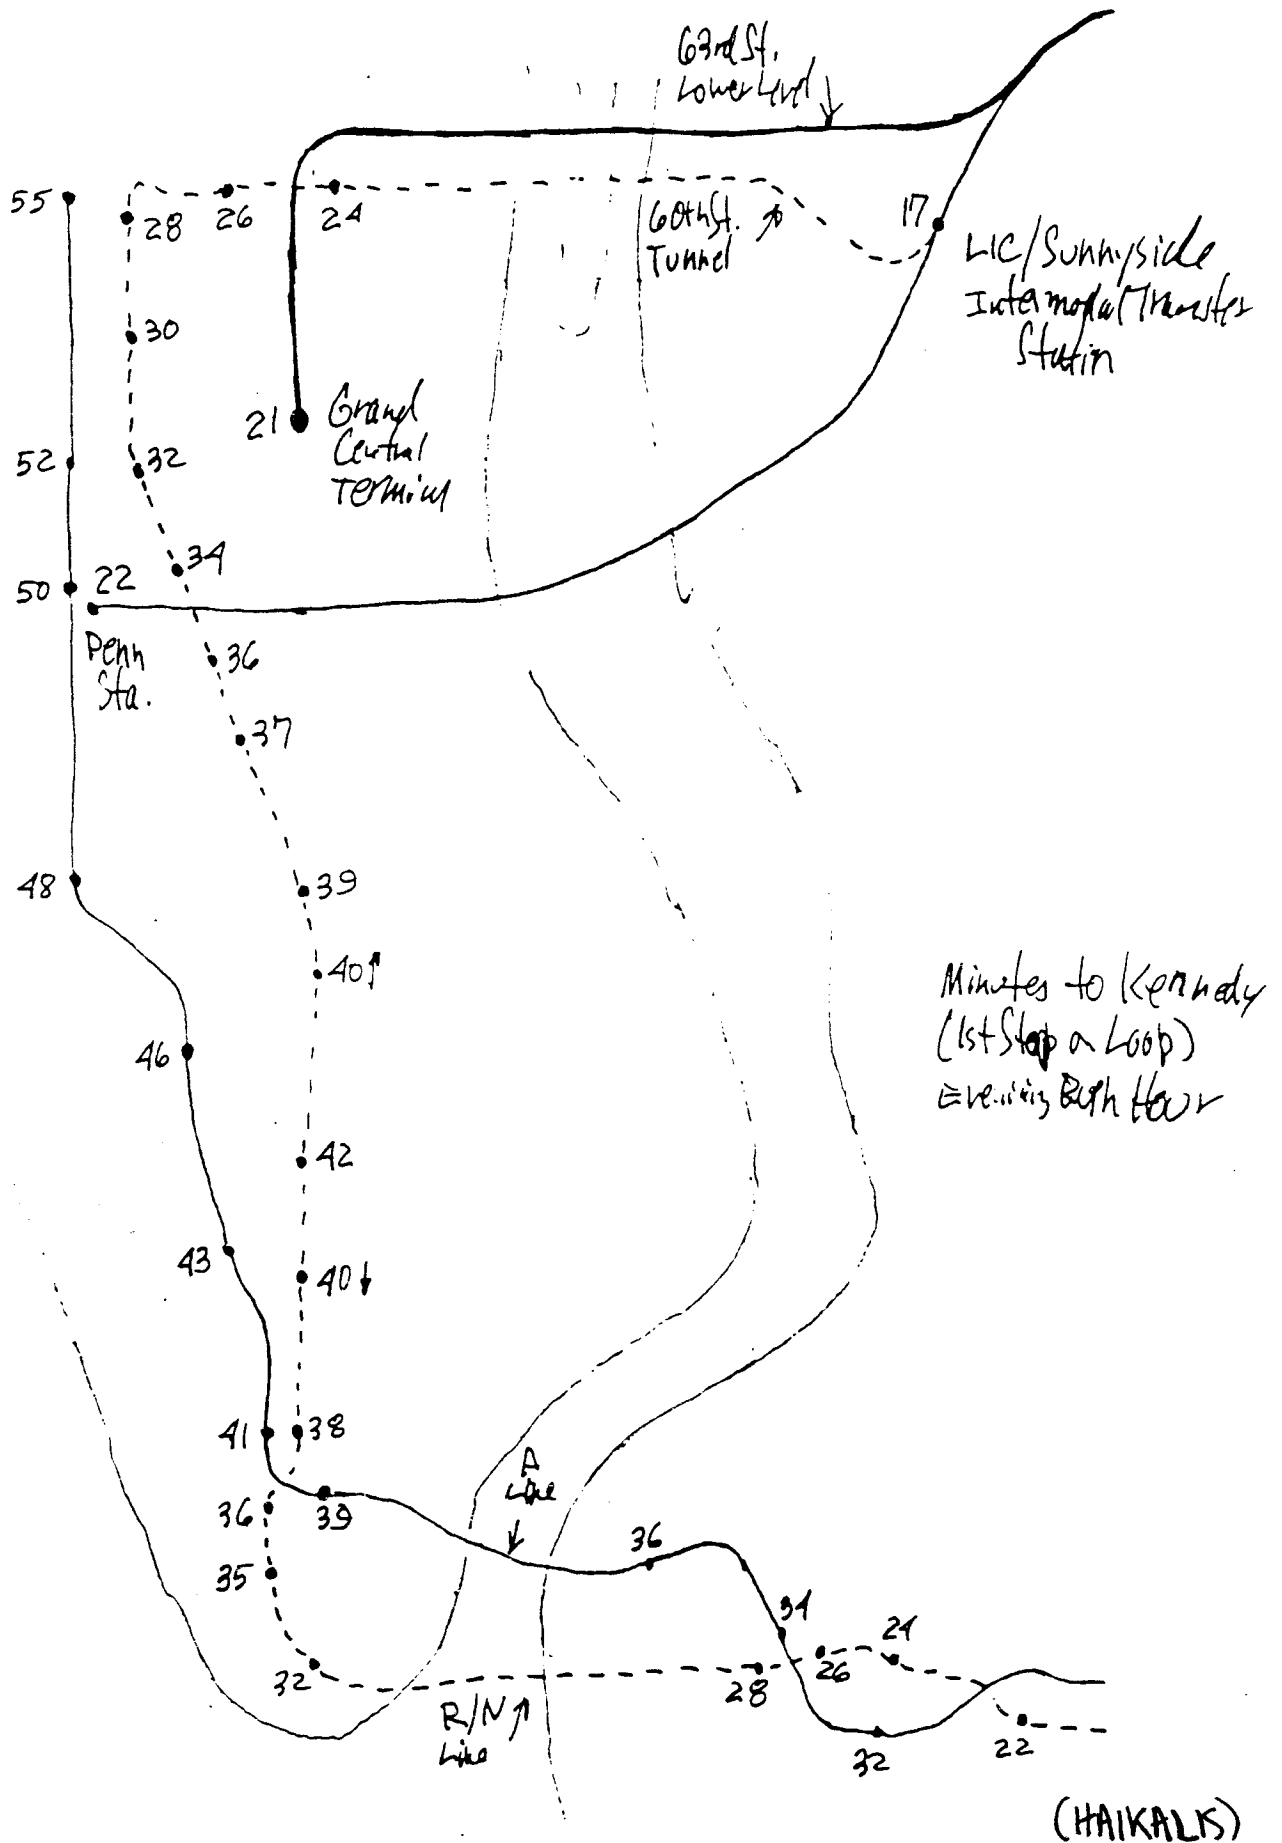 63rd St.
Lower Level
55
28
26
24
60th St.
Tunnel
17
LIC/Sunnyside
Intermodal Transfer
Station
30
21
Grand
Central
Terminal
52
32
34
50
22
Penn
Sta.
36
37
48
39
40↑
Minutes to Kennedy
(1st Stop on Loop)
Evening Rush Hour
46
42
43
40↓
41
38
A
Line
36
39
36
35
34
24
32
28
26
R/N↑
Line
32
22
(HAIKALIS)